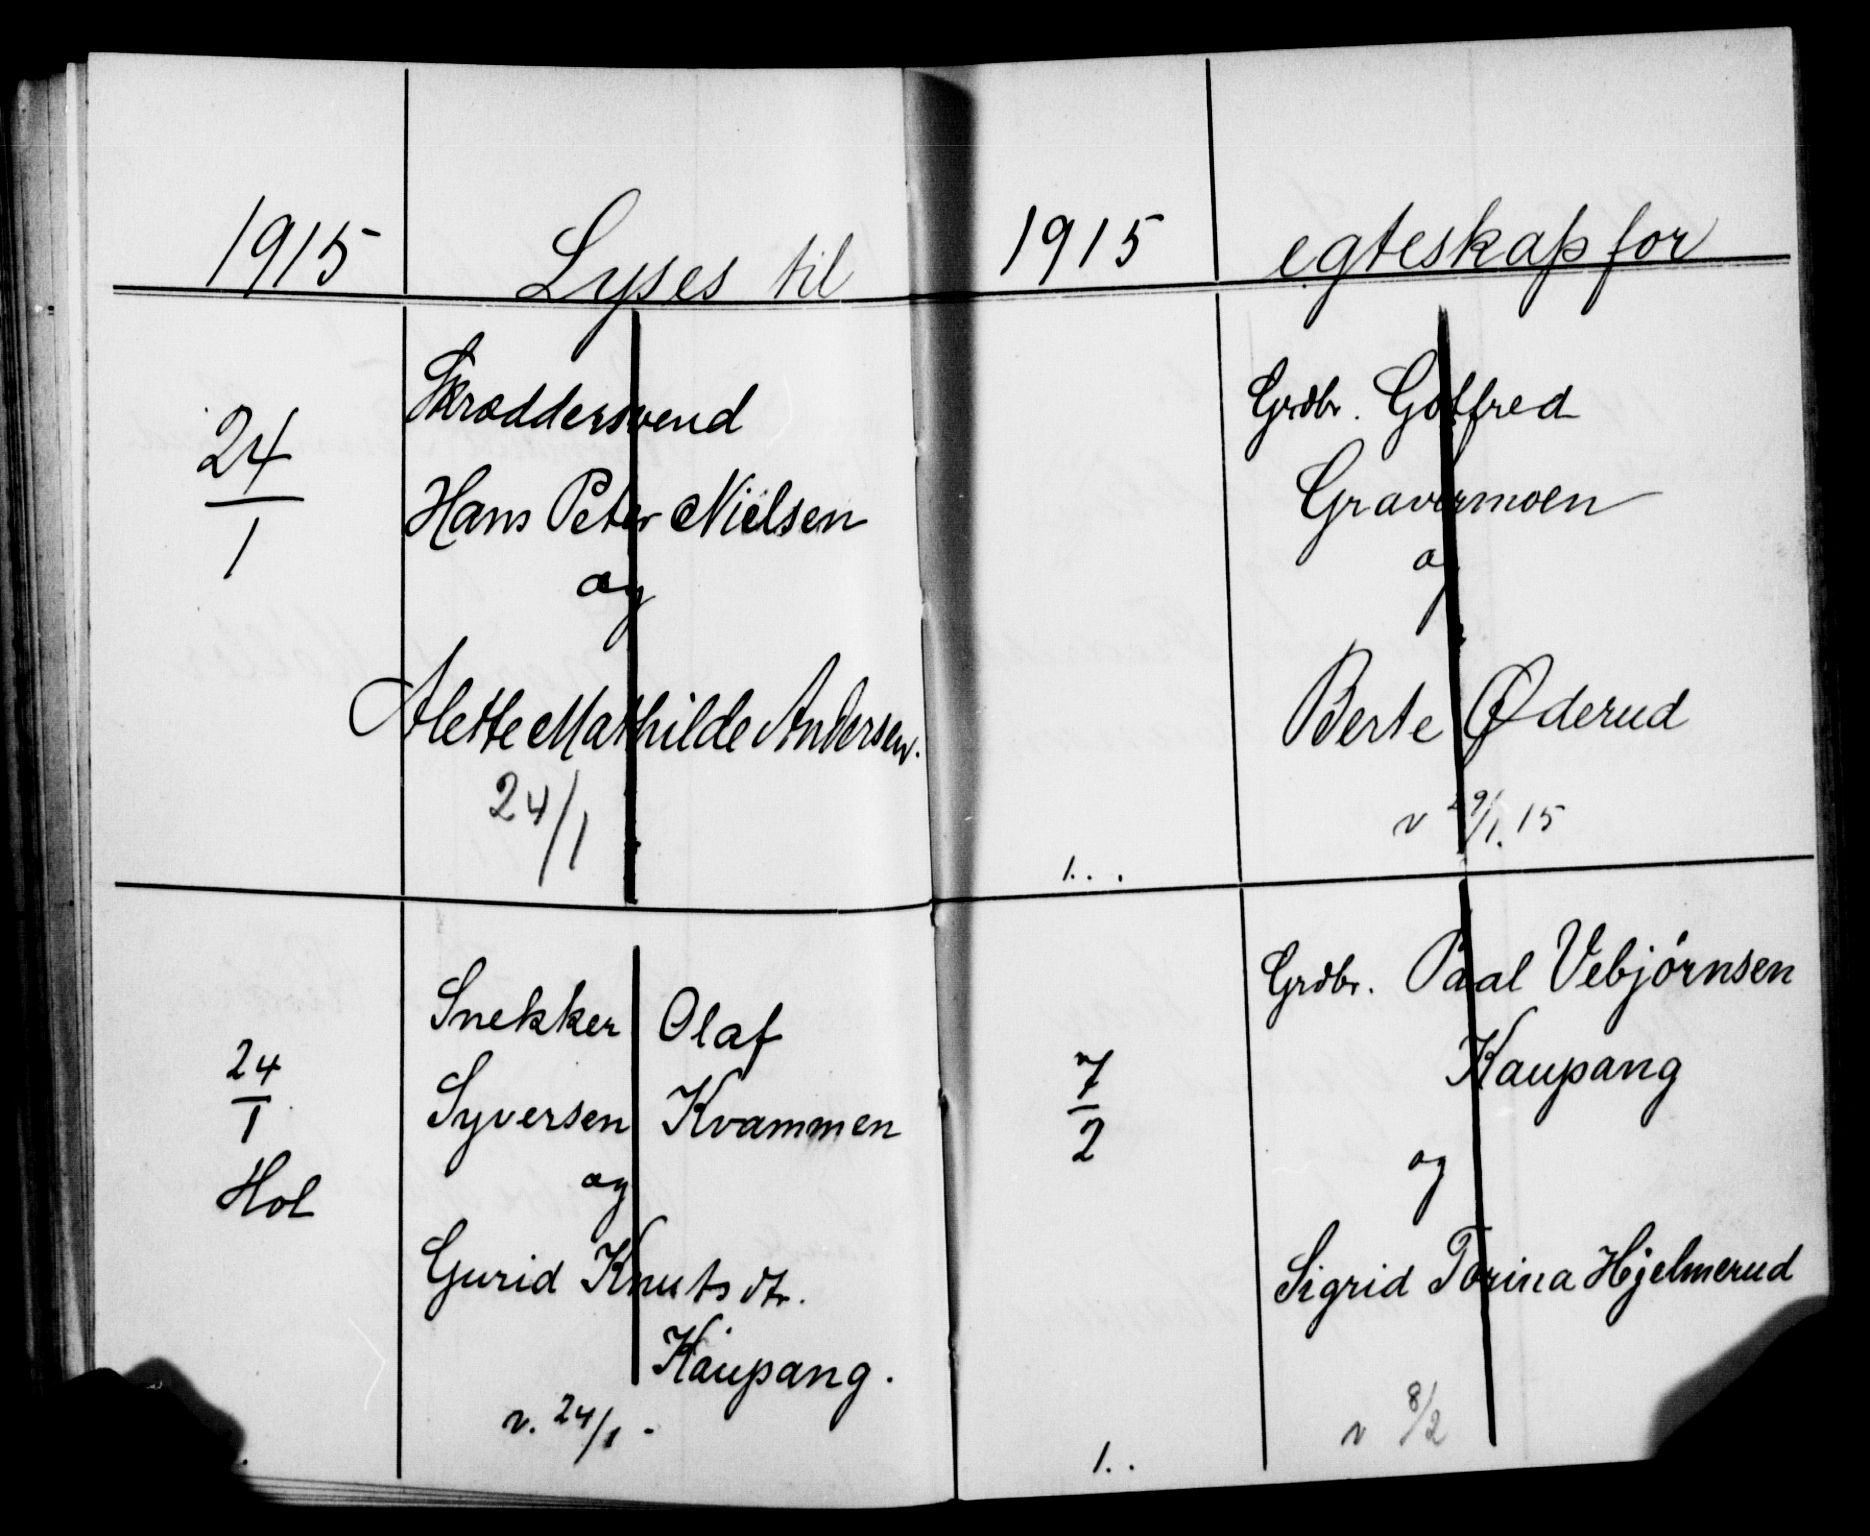 1915
Lyses til
24
1
Skræddersvend
Hans Peter Nielsen
og
Alette Mathilde Andersen.
24/1
24
1
Hol
Snekker Olaf
Syversen Kvammen
og
Gurid Knutsdtr.
Kaupang.
v. 24/1 -
1915
egteskap for
Grdbr. Gotfred
Gravermoen
og
Berte Øderud
v 29/1.15
1. . .
7
2
Grdbr. Paal Vebjørnsen
Kaupang
og
Sigrid Torina Hjelmerud
v 8/2
1. .